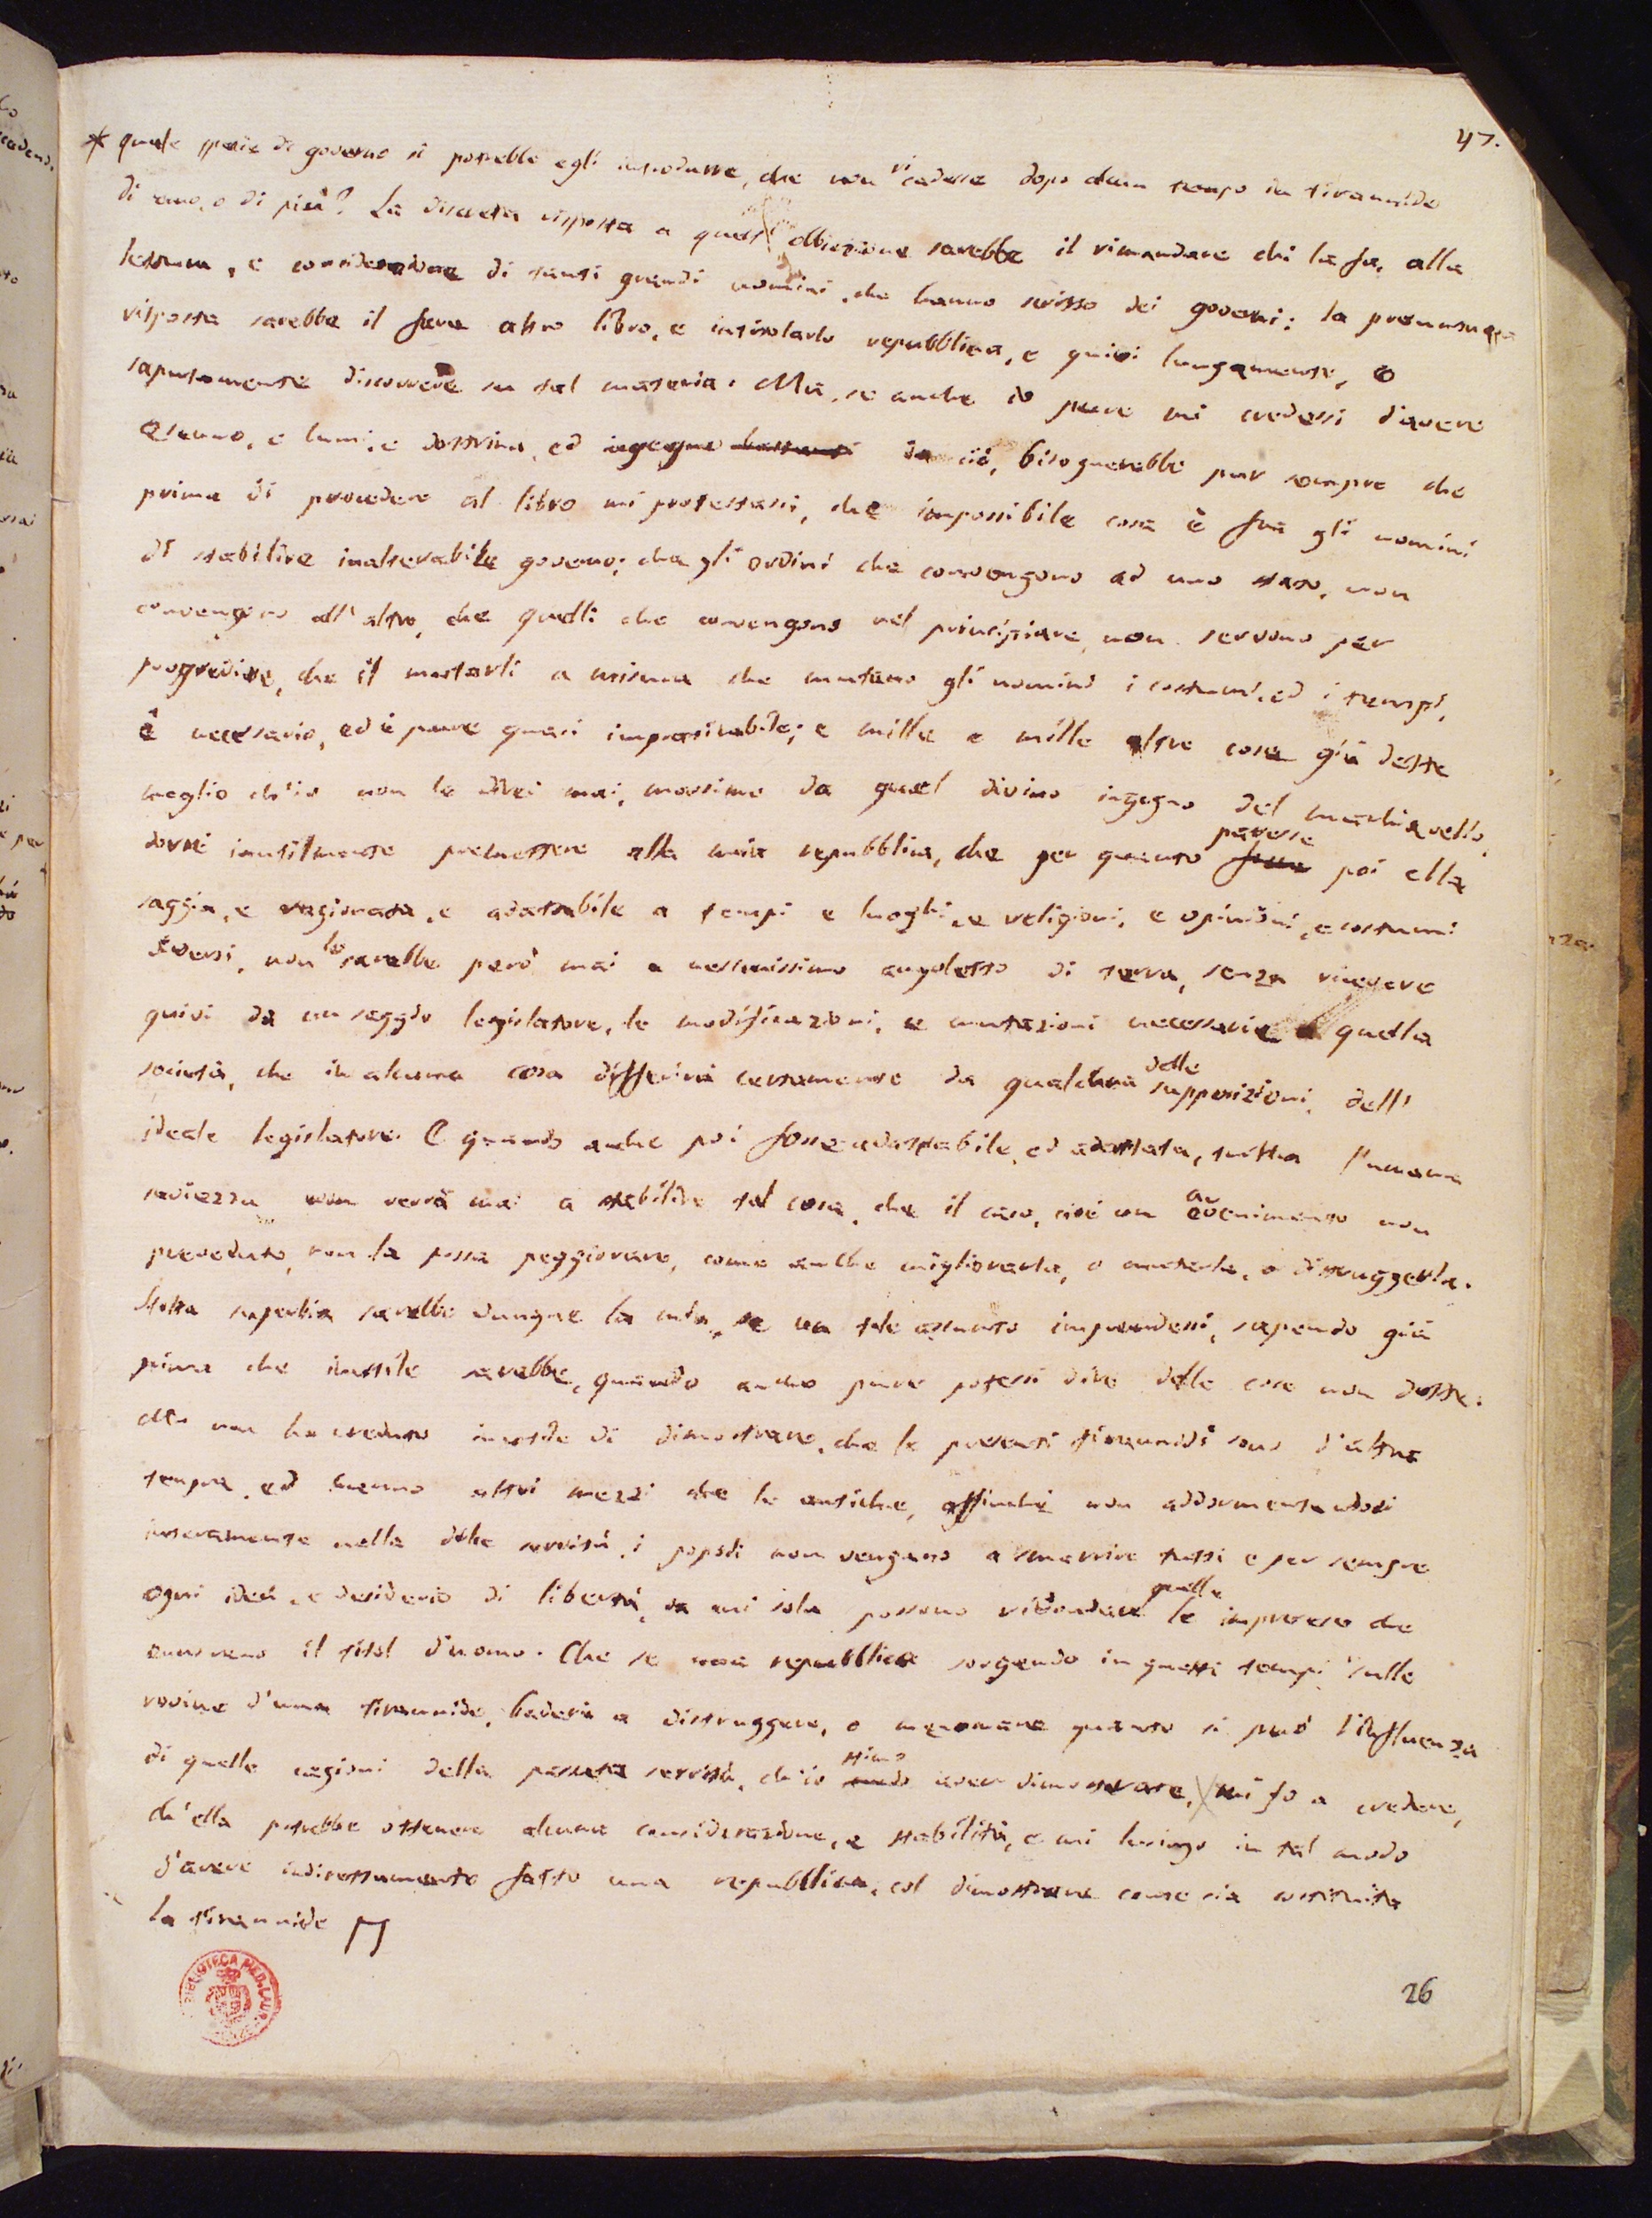 47.
* quale specie di governo si potrebbe egli introdurre, che non ricadesse dopo alcun tempo in tirannide
di uno, o di più? La discreta risposta a quest' obbiezione sarebbe il rimandare chi la fa, alla
lettura, e considerazione di tanti grandi uomini, che hanno scritto dei governi: la prosuntuosa
risposta sarebbe il fare altro libro, e intitolarlo repubblica, e quivi lungamente, e
saputamente discorrere su tal materia. Ma, se anche io pure mi credessi d'avere
senno, e lumi, e dottrina, ed ingegno da ciò, bisognerebbe pur sempre che
prima di procedere al libro mi protestassi, che impossibile cosa è fra gli uomini
di stabilire inalterabile governo; che gli ordini che convengono ad uno stato, non
convengono all'altro, che quelli che convengono nel principiare, non servono per
progredire, che il mutarli a misura che mutano gli uomini i costumi, ed i tempi,
è necessario, ed è pure quasi impossibile; e mille e mille altre cose già dette
meglio ch'io non le direi mai, massime da quel divino ingegno del Machiavello,
dovrei inutilmente premettere alla mia repubblica, che per quanto paresse poi ella
saggia, e ragionata, e adattabile a tempi e luoghi, e religioni, e opinioni, e costumi
diversi, non lo sarebbe però mai a nessunissimo angoletto di terra, senza ricevere
quivi da un saggio legislatore, le modificazioni, e mutazioni necessarie a quella
società, che in alcuna cosa differirà certamente da qualcuna delle supposizioni, dell'
ideale legislatore. E quando anche poi fosse adattabile, ed adattata, tutta l'umana
saviezza non verrà mai a stabilire tal cosa, che il caso, cioè un avvenimento non
preveduto, non la possa peggiorare, come anche migliorarla, o mutarla, o distruggerla.
Stolta superbia sarebbe dunque la mia, se un tale assunto imprendessi, sapendo già
prima che inutile sarebbe, quando anche pure potessi dire delle cose non dette.
Ma non ho creduto inutile di dimostrare, che le presenti tirannidi sono d'altra
tempra, ed hanno altri mezzi che le antiche, affinchè non addormentandosi
interamente nella dolce servitù, i popoli non vengano a smarrire tutti e per sempre
ogni idea, e desiderio di libertà, da cui sola possono ridondare quelle imprese che
onorano il titol d'uomo. Che se una repubblica sorgendo in questi tempi sulle
rovine d'una tirannide, baderà a distruggere, o menomare quanto si può l'influenza
di quelle cagioni della passata servitù, ch'io stimo aver dimostrate, mi fo a credere,
ch'ella potrebbe ottenere alcuna considerazione, e stabilità, e mi lusingo in tal modo
d'avere indirettamente fatto una repubblica, col dimostrare come sia costituita
la tirannide
BIBLIOTECA MED. LAUR.
26